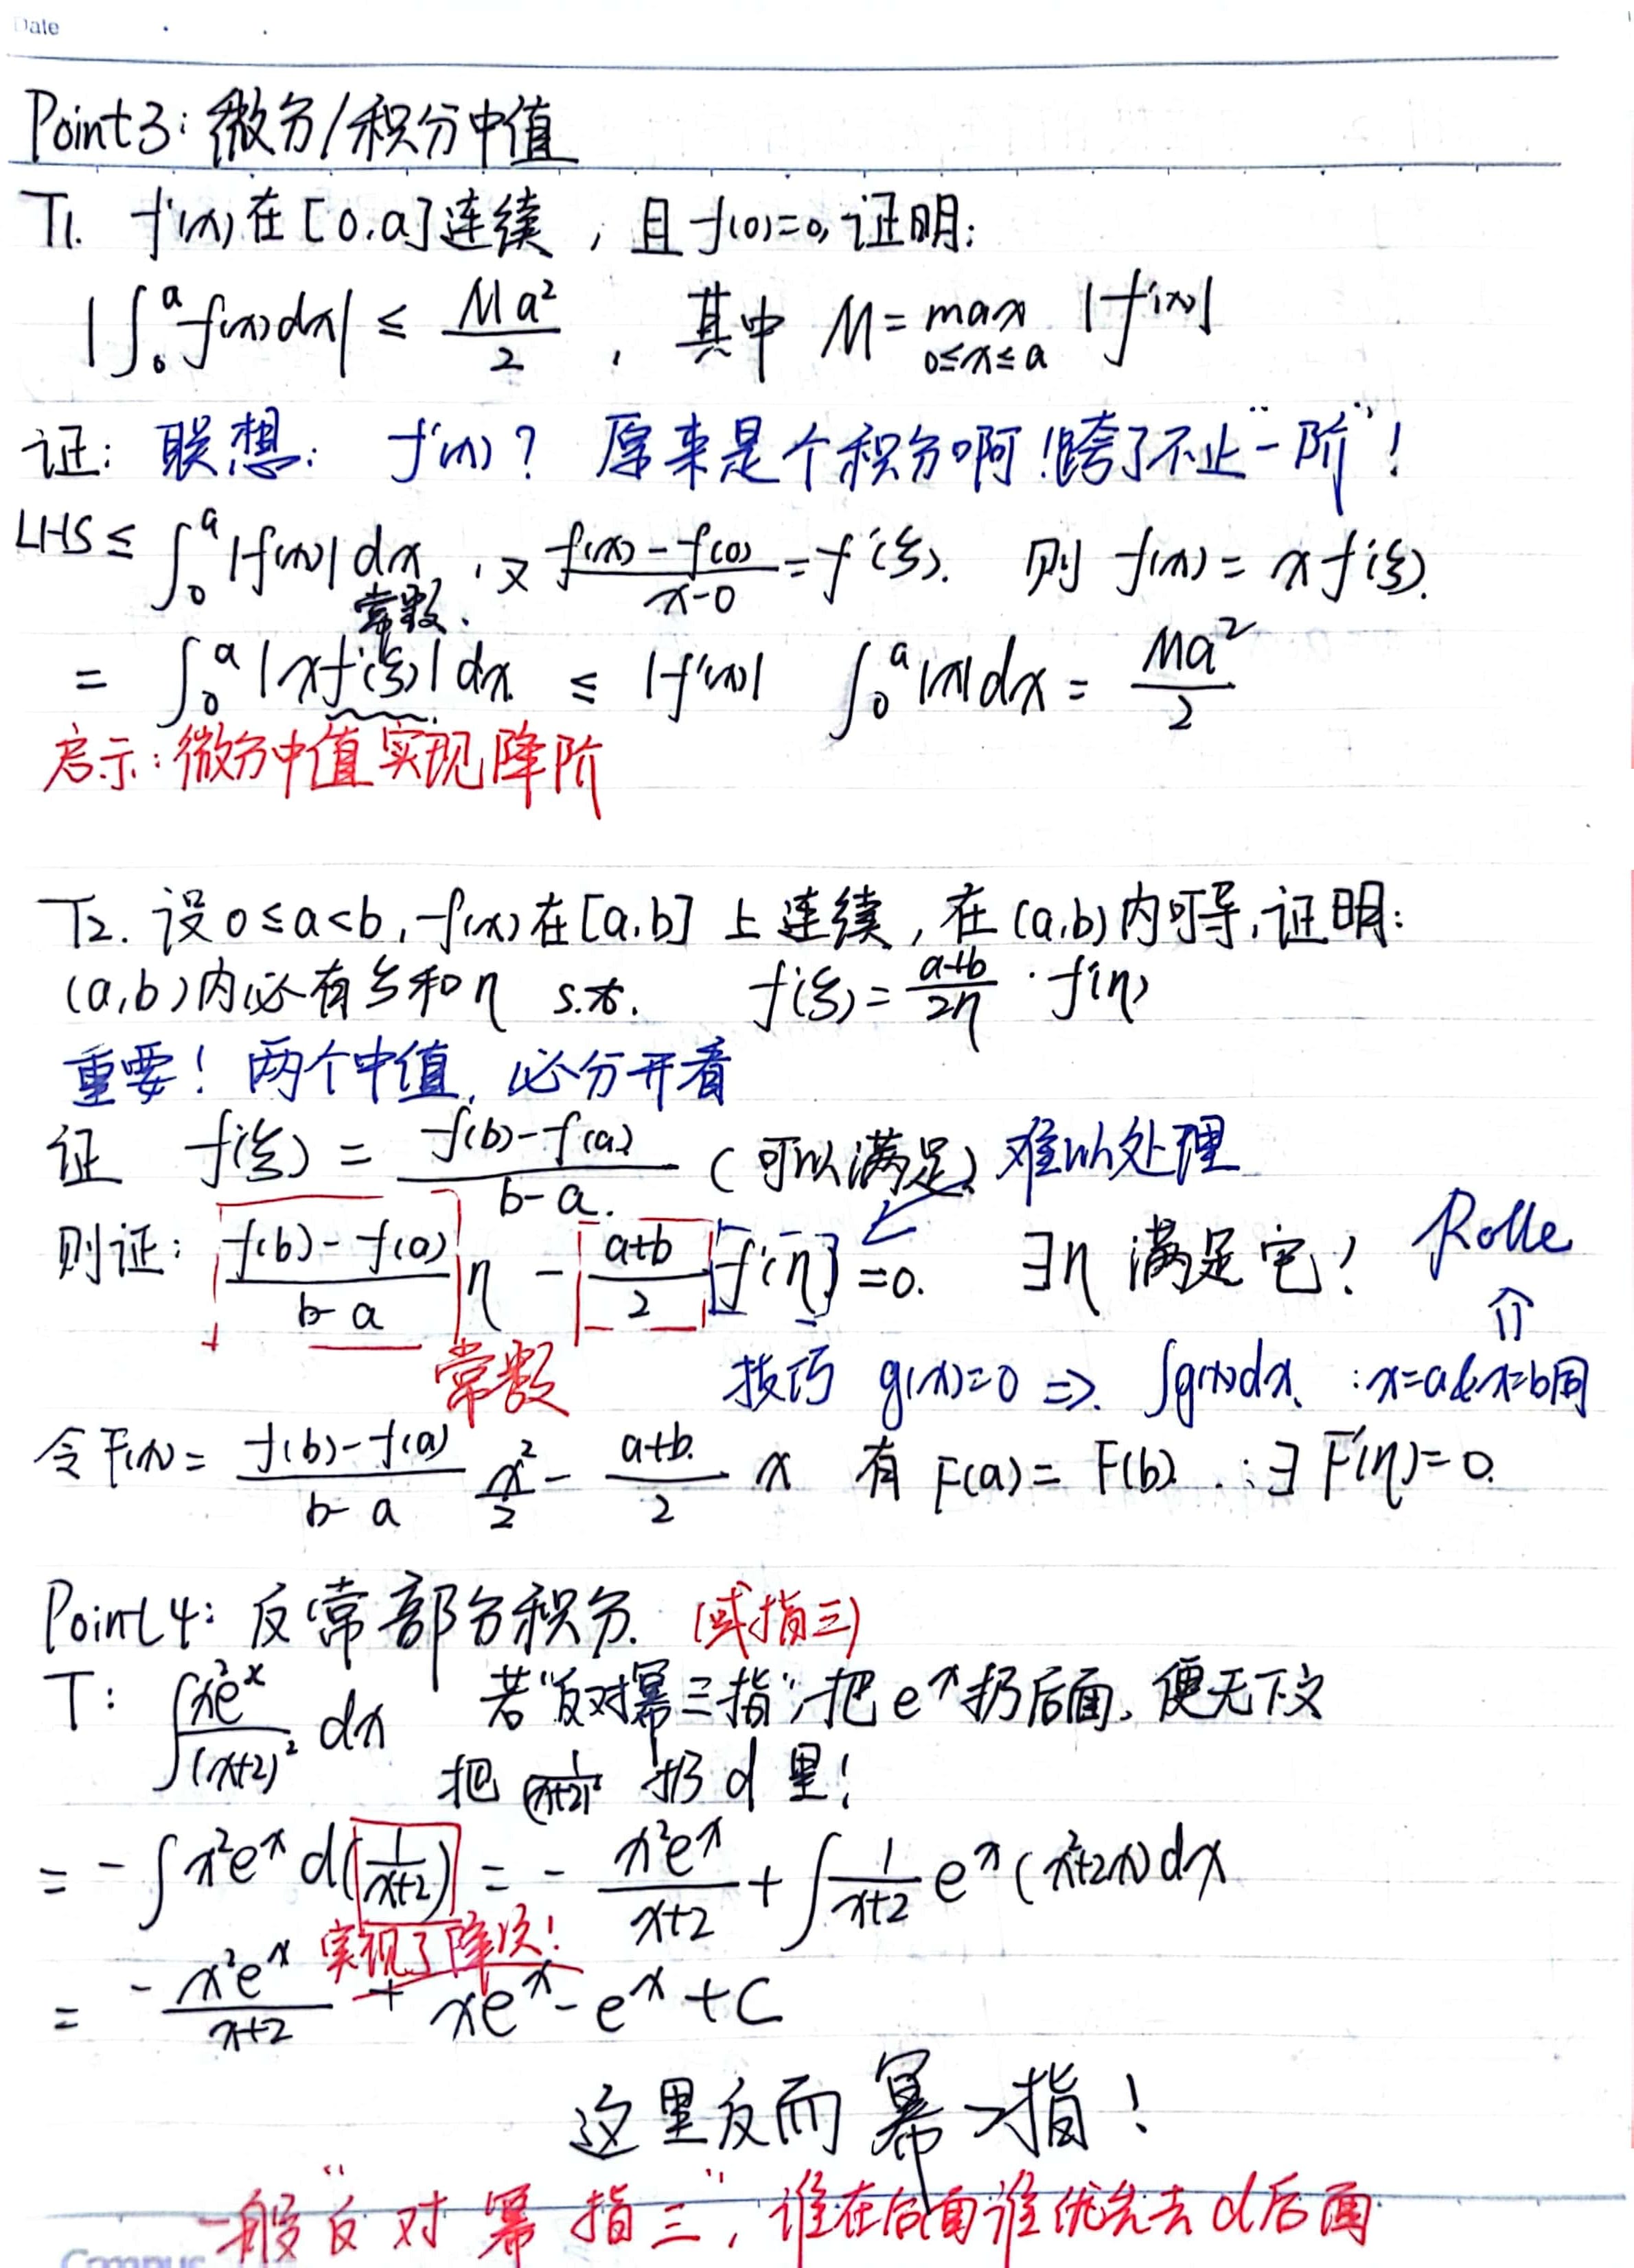 Date
Point3: 微分/积分中值
T1. f'(x)在[0,a]连续，且f(0)=0,证明:
|∫₀ᵃ f(x)dx| ≤ Ma²/2，其中 M= max_{0≤x≤a} |f'(x)|
证: 联想: f'(x)? 原来是个积分啊!跨了不止"一阶"!
LHS ≤ ∫₀ᵃ |f(x)| dx，又 (f(x)-f(0))/(x-0) = f'(ξ). 则 f(x) = x f'(ξ).
常数.
= ∫₀ᵃ |xf'(ξ)| dx ≤ |f'(x)| ∫₀ᵃ |x|dx = Ma²/2
启示:微分中值实现降阶
T2. 设0≤a<b, f(x)在[a,b]上连续,在(a,b)内可导,证明:
(a,b)内必有ξ和η s.t. f'(ξ) = (a+b)/2η · f'(η)
重要! 两个中值,必分开看
证 f'(ξ) = (f(b)-f(a))/(b-a). (可以满足) 难以处理
则证: (f(b)-f(a))/(b-a) η - (a+b)/2 f'(η) =0. ∃η 满足它! Rolle
⇑
常数 技巧 g(x)=0 ⇒ ∫g(x)dx. :x=a&x=b同
令F(x)= (f(b)-f(a))/(b-a) x²/2 - (a+b)/2 x 有 F(a)=F(b) ∴∃ F'(η)=0.
Point4: 反常部分积分. (或指三)
T: ∫x²eˣ/(x+2)² dx 若"反对幂三指",把eˣ扔后面,便无下文
把 1/(x+2)² 扔d里!
= -∫x²eˣ d(1/(x+2)) = - x²eˣ/(x+2) + ∫1/(x+2) eˣ(x²+2x)dx
实现了降次!
= -x²eˣ/(x+2) + xeˣ - eˣ + C
这里反而幂→指!
一般"反对幂指三",谁在后面谁优先去d后面
Campus